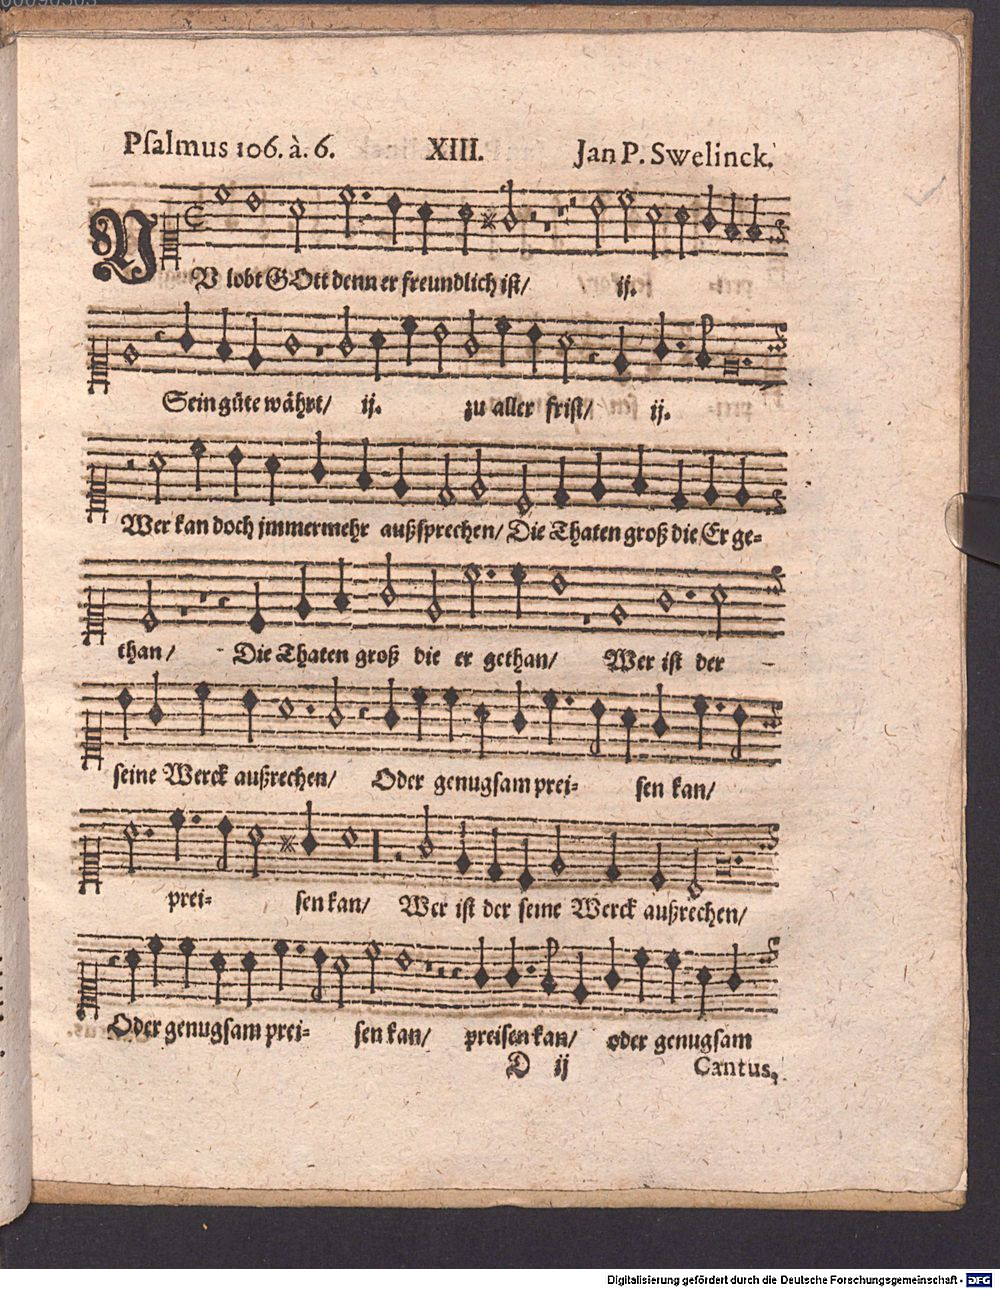 Psalmus 106. à. 6. XIII. Jan P. Swelinck.
NV lobt GOtt denn er freundlich ist/ ij.
Sein güte währt/ ij. zu aller frist/ ij.
Wer kan doch jmmermehr außsprechen/ Die Thaten groß die Er ge-
than/ Die Thaten groß die er gethan/ Wer ist der
seine Werck außrechen/ Oder genugsam prei- sen kan/
prei- sen kan/ Wer ist der seine Werck außrechen/
Oder genugsam prei- sen kan/ preisen kan/ oder genugsam
D ij Cantus.
Digitalisierung gefördert durch die Deutsche Forschungsgemeinschaft - DFG